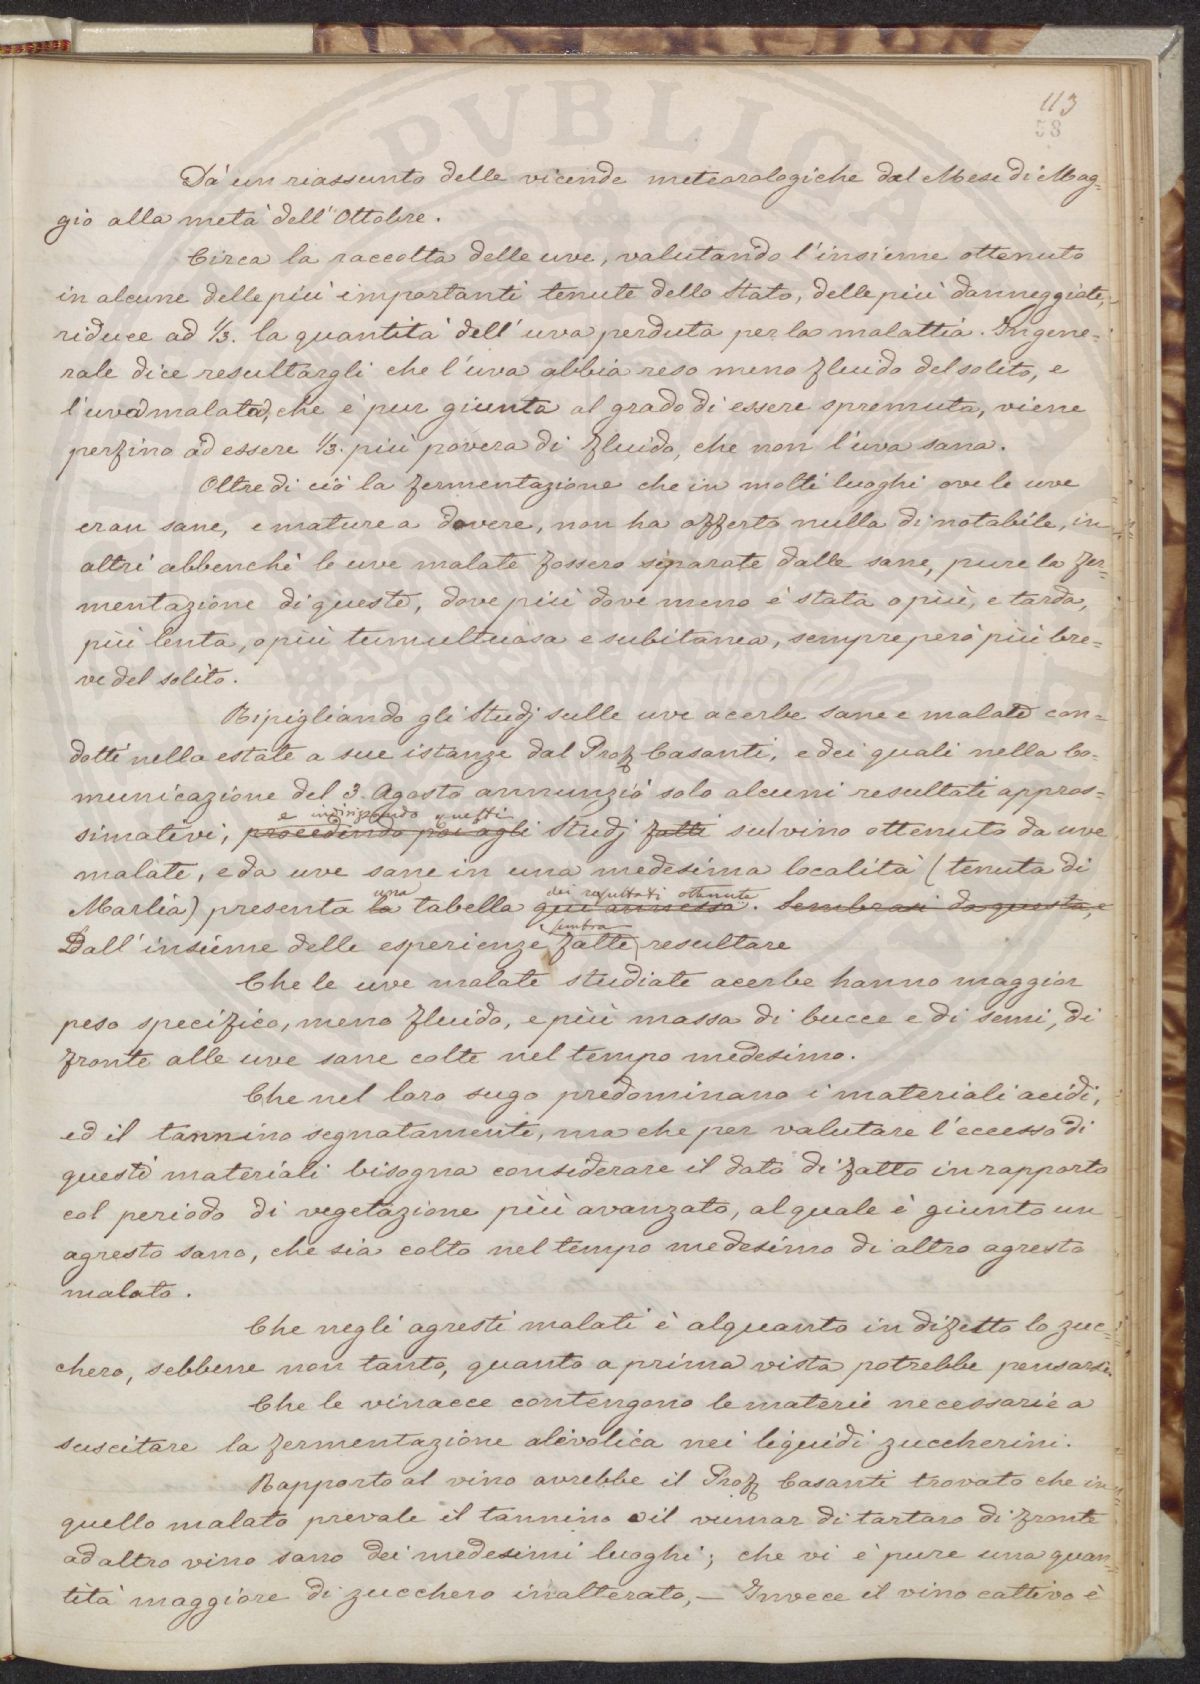 113
58
Dà un riassunto delle vicende meteorologiche dal Mese di Mag=
gio alla metà dell'Ottobre.
Circa la raccolta delle uve, valutando l'insieme ottenuto
in alcune delle più importanti tenute dello Stato, delle più danneggiate,
riduce ad 1/3. la quantità dell'uva perduta per la malattia. In gene=
rale dice resultargli che l'uva abbia reso meno fluido del solito, e
l'uva malata, che è pur giunta al grado di essere spremuta, viene
perfino ad essere 1/3. più povera di fluido, che non l'uva sana.
Oltre di ciò la fermentazione che in molti luoghi ove le uve
eran sane, e mature a dovere, non ha offerto nulla di notabile, in
altri abbenchè le uve malate fossero separate dalle sane, pure la fer=
mentazione di queste, dove più dove meno è stata o più, e tarda,
più lenta, o più tumultuosa e subitanea, sempre però più bre=
ve del solito.
Ripigliando gli Studj sulle uve acerbe sane e malate con=
dotti nella estate a sue istanze dal Prof Casanti, e dei quali nella Co=
municazione del 3. Agosto annunziò solo alcuni resultati appros=
e questi
simativi, procedendo poi agli Studj fatti sul vino ottenuto da uve
malate, e da uve sane in una medesima località (tenuta di
una dei resultati ottenuti
Marlia) presenta la tabella qui annessa. Sembrasi da questa, e
sembra
Dall'insieme delle esperienze fatte resultare
Che le uve malate studiate acerbe hanno maggior
peso specifico, meno fluido, e più massa di bucce e di semi, di
fronte alle uve sane colte nel tempo medesimo.
Che nel loro sugo predominano i materiali acidi,
ed il tannino segnatamente, ma che per valutare l'eccesso di
questi materiali bisogna considerare il dato di fatto in rapporto
col periodo di vegetazione più avanzato, al quale è giunto un
agresto sano, che sia colto nel tempo medesimo di altro agresto
malato.
Che negli agresti malati è alquanto in difetto lo zuc=
chero, sebbene non tanto, quanto a prima vista potrebbe pensarsi.
Che le vinacce contengono le materie necessarie a
suscitare la fermentazione alcoolica nei liquidi zuccherini.
Rapporto al vino avrebbe il Prof Casanti trovato che in
quello malato prevale il tannino e il cumor di tartaro di fronte
ad altro vino sano dei medesimi luoghi; che vi è pure una quan=
tità maggiore di zucchero inalterato, — Invece il vino cattivo è